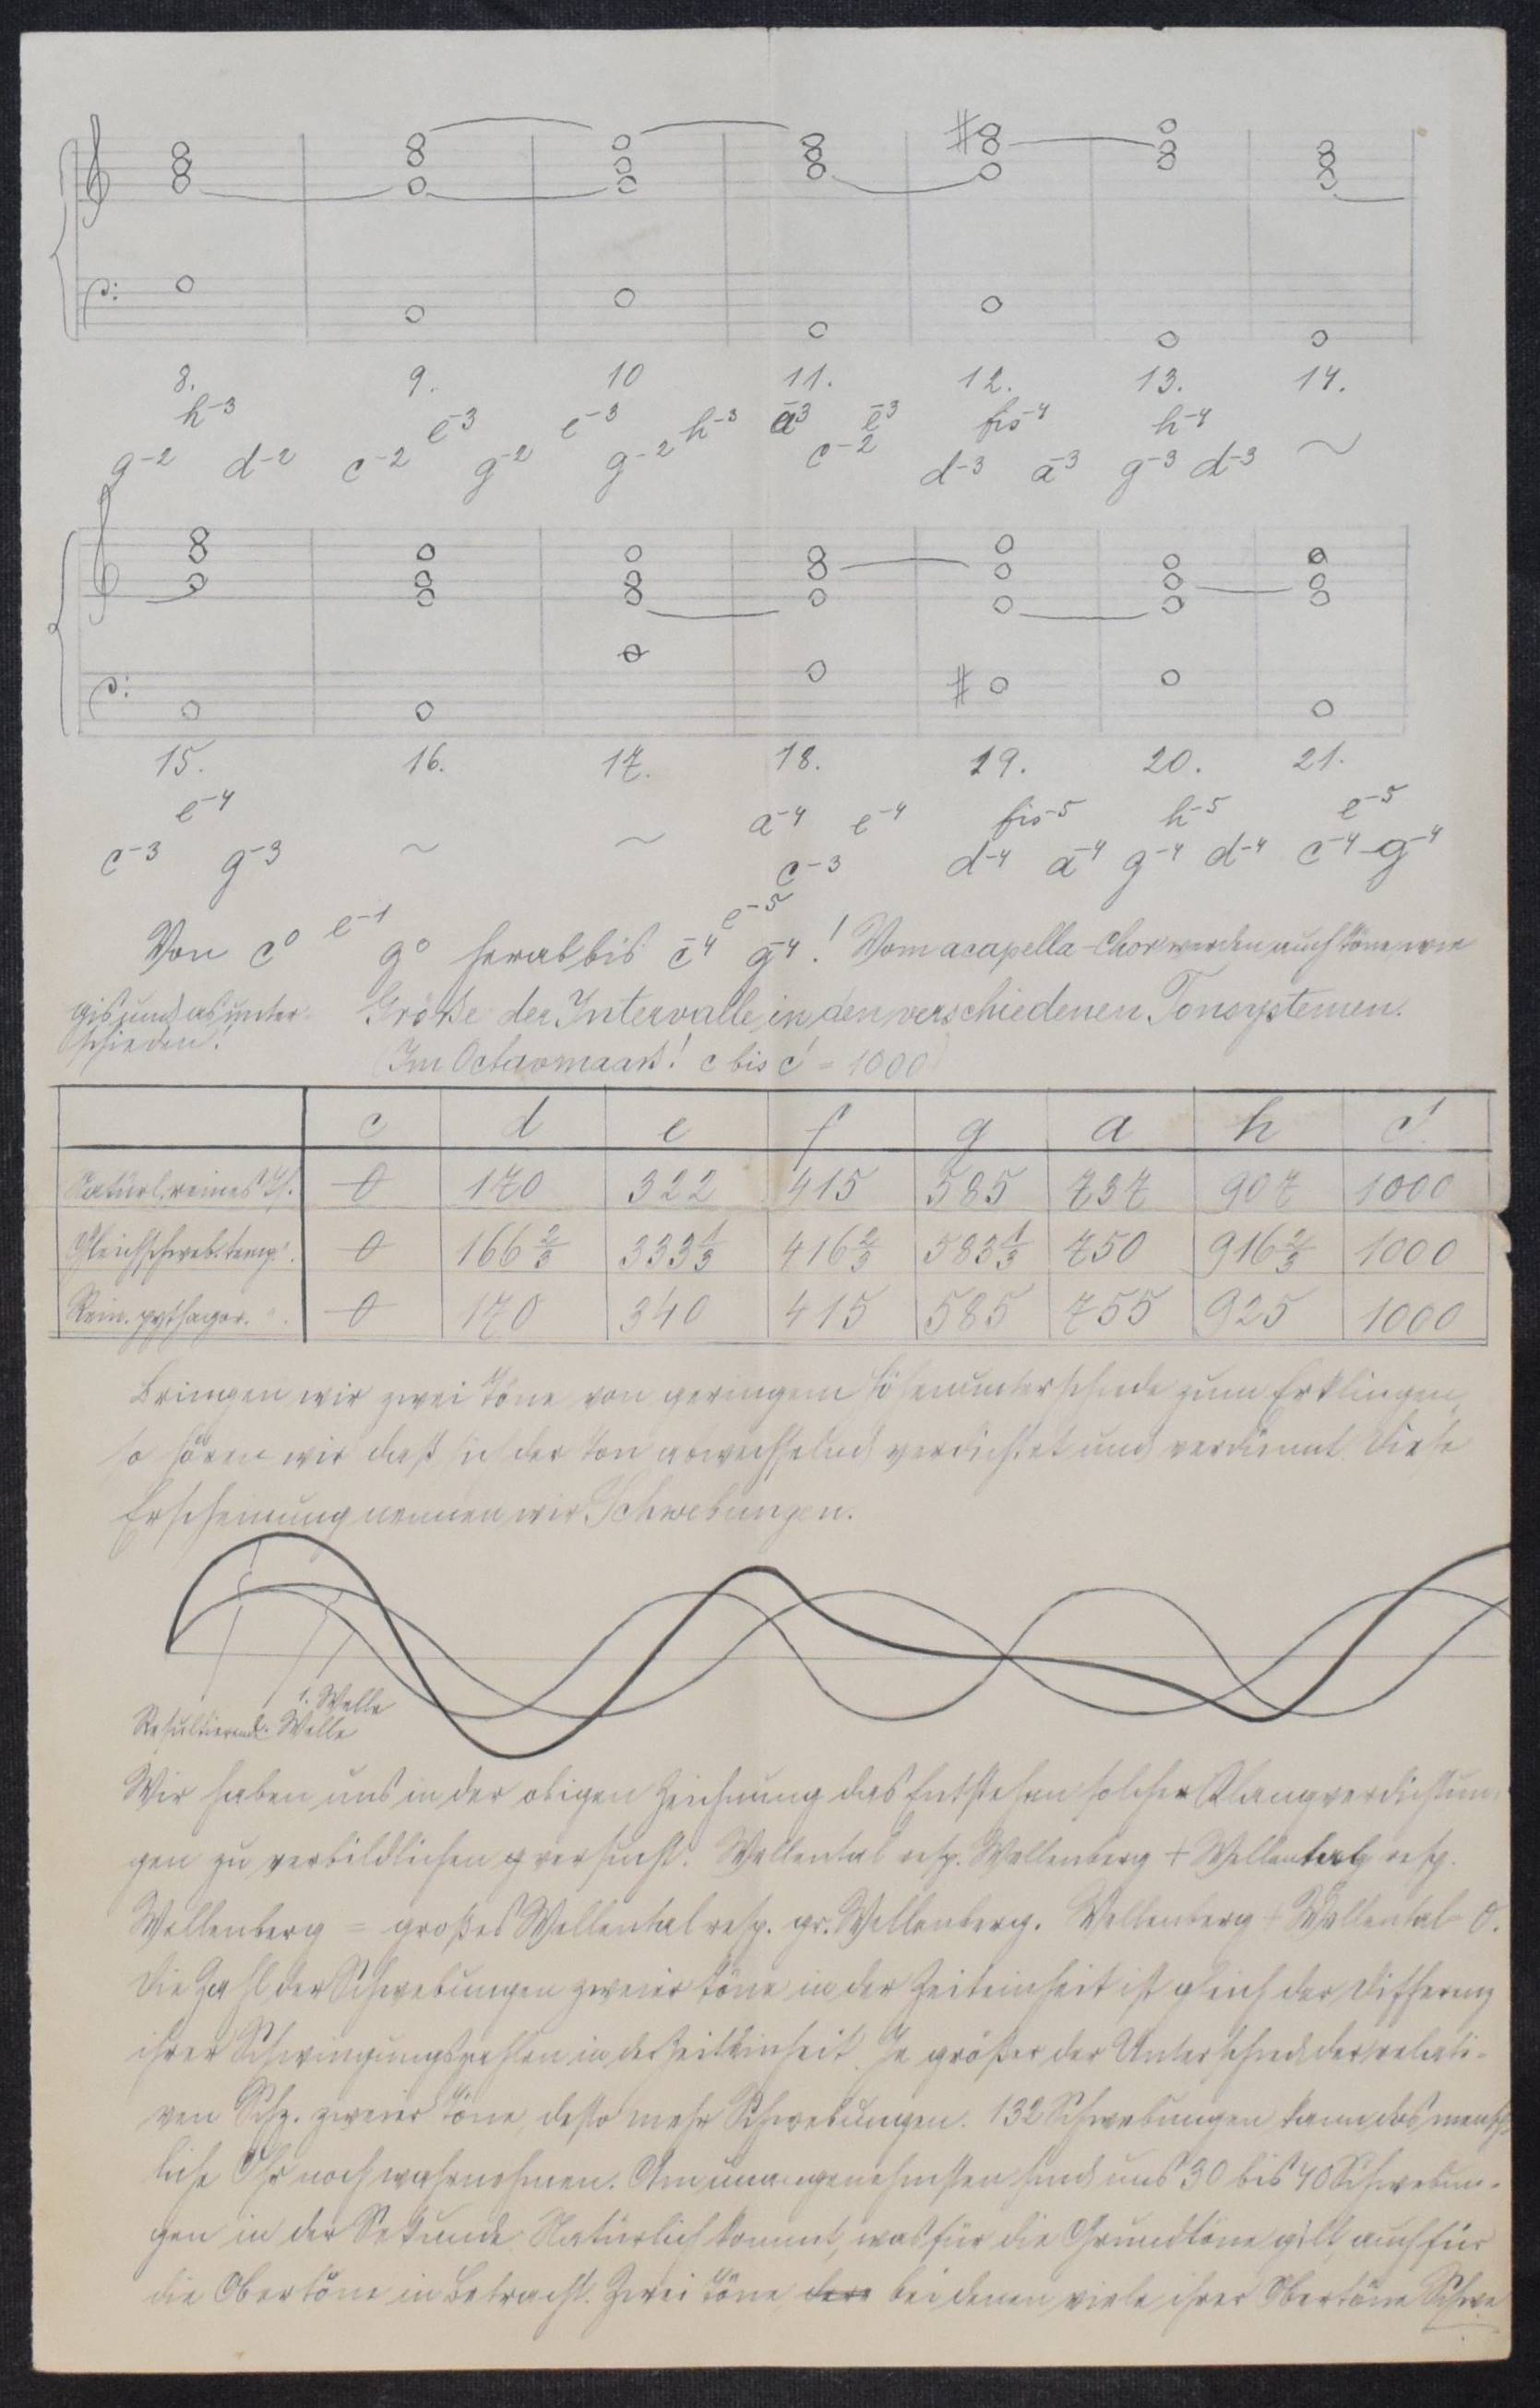 8. 9. 10 11. 12. 13. 14.
h-3 e-3 e-3 h-3 a-3 e-3 fis-4 h-4
g-2 d-2 c-2 g-2 g-2 c-2 d-3 a-3 g-3 d-3 ~
15. 16. 17. 18. 19. 20. 21.
e-4 a-4 e-4 fis-5 h-5 e-5
c-3 g-3 ~ ~ c-3 d-4 a-4 g-4 d-4 c-4 g-4
Von c0 e-1 g0 herab bis c-4 e-5 g-4! Vom acapella-Chor werden auch Töne wie
gis und as unter-
schieden!
Größe der Intervalle in den verschiedenen Tonsystemen.
(Im Octavmaass! c bis c' = 1000)
c d e f g a h c'
Natürl. reines 0 170 322 415 585 737 907 1000
Gleichschweb. temp. 0 166 2/3 333 1/3 416 2/3 583 1/3 750 916 2/3 1000
Rein. pythagor. 0 170 340 415 585 755 925 1000
Bringen wir zwei Töne von geringem Höhenunterschiede zum Erklingen,
so hören wir daß sich der Ton abwechselnd verdichtet und verdünnt. Diese
Erscheinung nennen wir Schwebungen.
1. Welle
Resultierende Welle
Wir haben uns in der obigen Zeichnung das Entstehen solcher Klangverdichtun-
gen zu verbildlichen versucht. Wellental resp. Wellenberg + Wellental resp.
Wellenberg = großes Wellental resp. gr. Wellenberg. Wellenberg + Wellental = 0.
Die Zahl der Schwebungen zweier Töne in der Zeiteinheit ist gleich der Differenz
ihrer Schwingungszahlen in der Zeiteinheit. Je größer der Unterschied der relati-
ven Schz. zweier Töne desto mehr Schwebungen. 132 Schwebungen kann das mensch-
liche Ohr noch wahrnehmen. Am unangenehmsten sind uns 30 bis 40 Schwebun-
gen in der Sekunde. Natürlich kommt, was für die Grundtöne gilt, auch für
die Obertöne in Betracht. Zwei Töne bei denen viele ihrer Obertöne Schwe